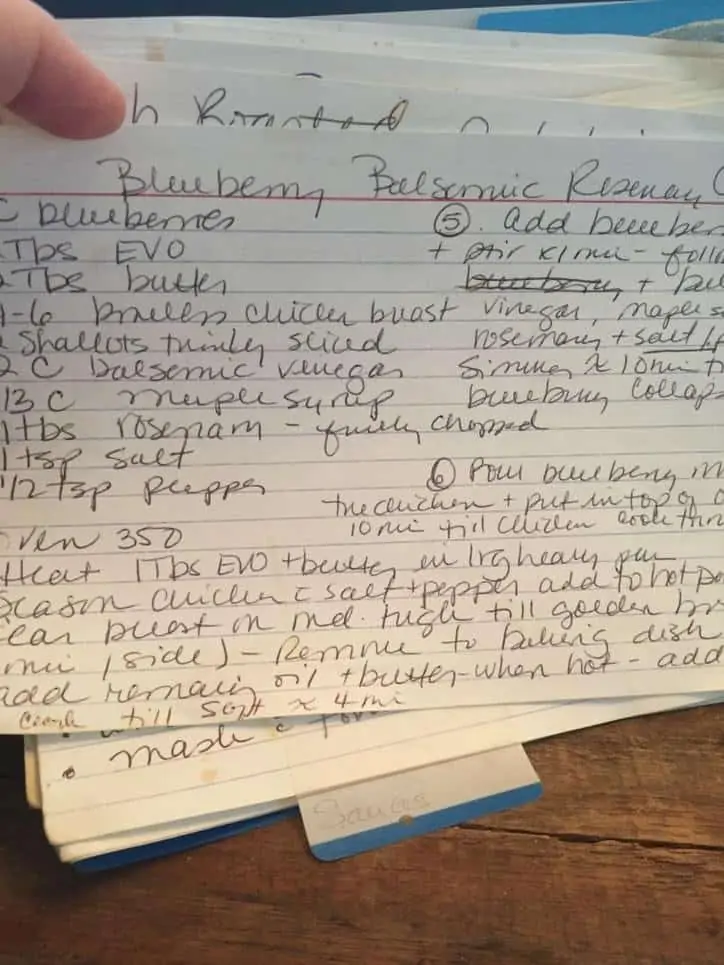 Blueberry Balsemic Rosemary C
C blueberries
Tbs EVO
2 Tbs butter
4-6 boneless chicken breast
Shallots thinly sliced
2 C balsemic vinegar
1/3 C maple syrup
1 tbs rosemary - finely chopped
1 tsp salt
1/2 tsp pepper
⑤. add blueber
+ stir x1 min - foll
blueberry + bal
vinegar, maple s
rosemary + salt /p
Simmer x 10 min t
blueberry collaps
⑥ Pour blueberry m
the chicken + put in top of o
10 min till chicken cook thr
oven 350
Heat 1 Tbs EVO + butter in lrg heavy pan
Season chicken c salt + pepper add to hot pa
ear breast on med. high till golden bro
min /side) - Remove to baking dish
add remain oil + butter - when hot - add
Cook till soft x 4 mi
• mash c for
Sauces